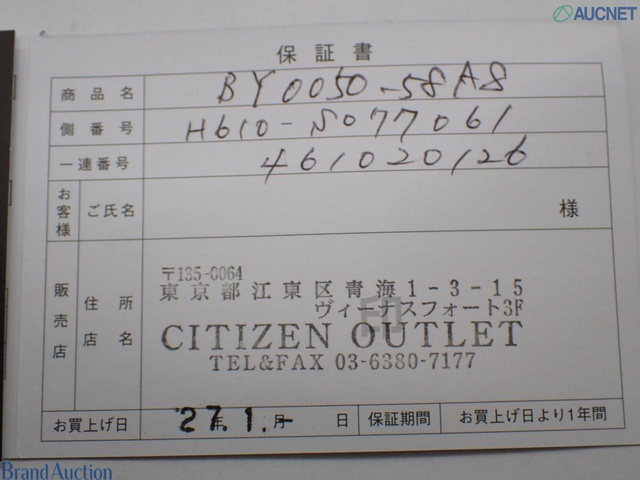 AUCNET
保証書
商品名 BY0050-58A8
側番号 H610-S077061
一連番号 461020126
お客様 ご氏名 様
販売店 住所 店名
〒135-0064
東京都江東区青海1-3-15
ヴィーナスフォート3F
印
CITIZEN OUTLET
TEL&FAX 03-6380-7177
お買上げ日 27年1.月- 日 保証期間 お買上げ日より1年間
Brand Auction